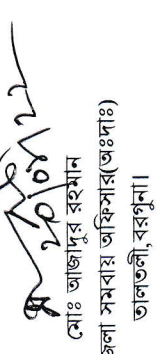 ২০/০৪/২২
মোঃ আজাদুর রহমান
জেলা সমবায় অফিসার(অঃদাঃ)
তালতলী,বরগুনা।